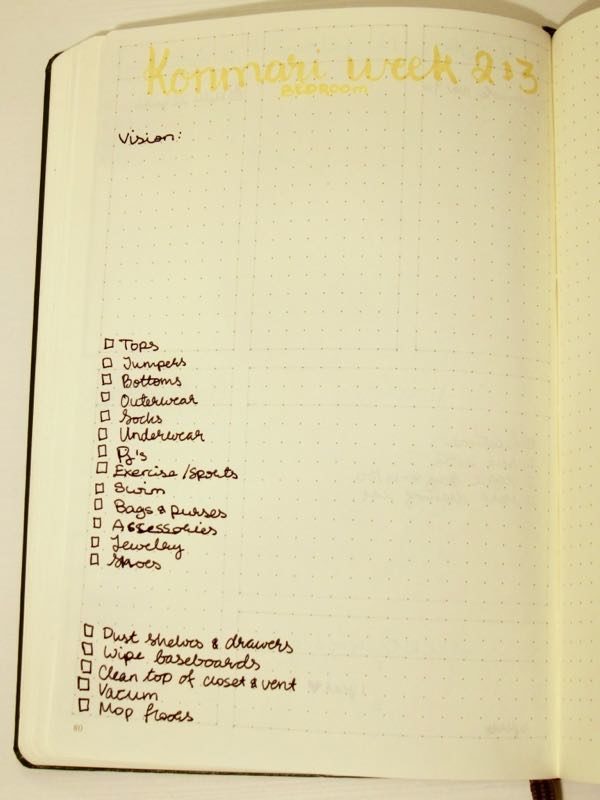 Konmari week 2&3
BEDROOM
Vision:
Tops
Jumpers
Bottoms
Outerwear
Socks
Underwear
Pj's
Exercise/sports
Swim
Bags & purses
Accessories
Jewelry
Shoes
Dust shelves & drawers
Wipe baseboards
Clean top of closet & vent
Vacum
Mop floors
80